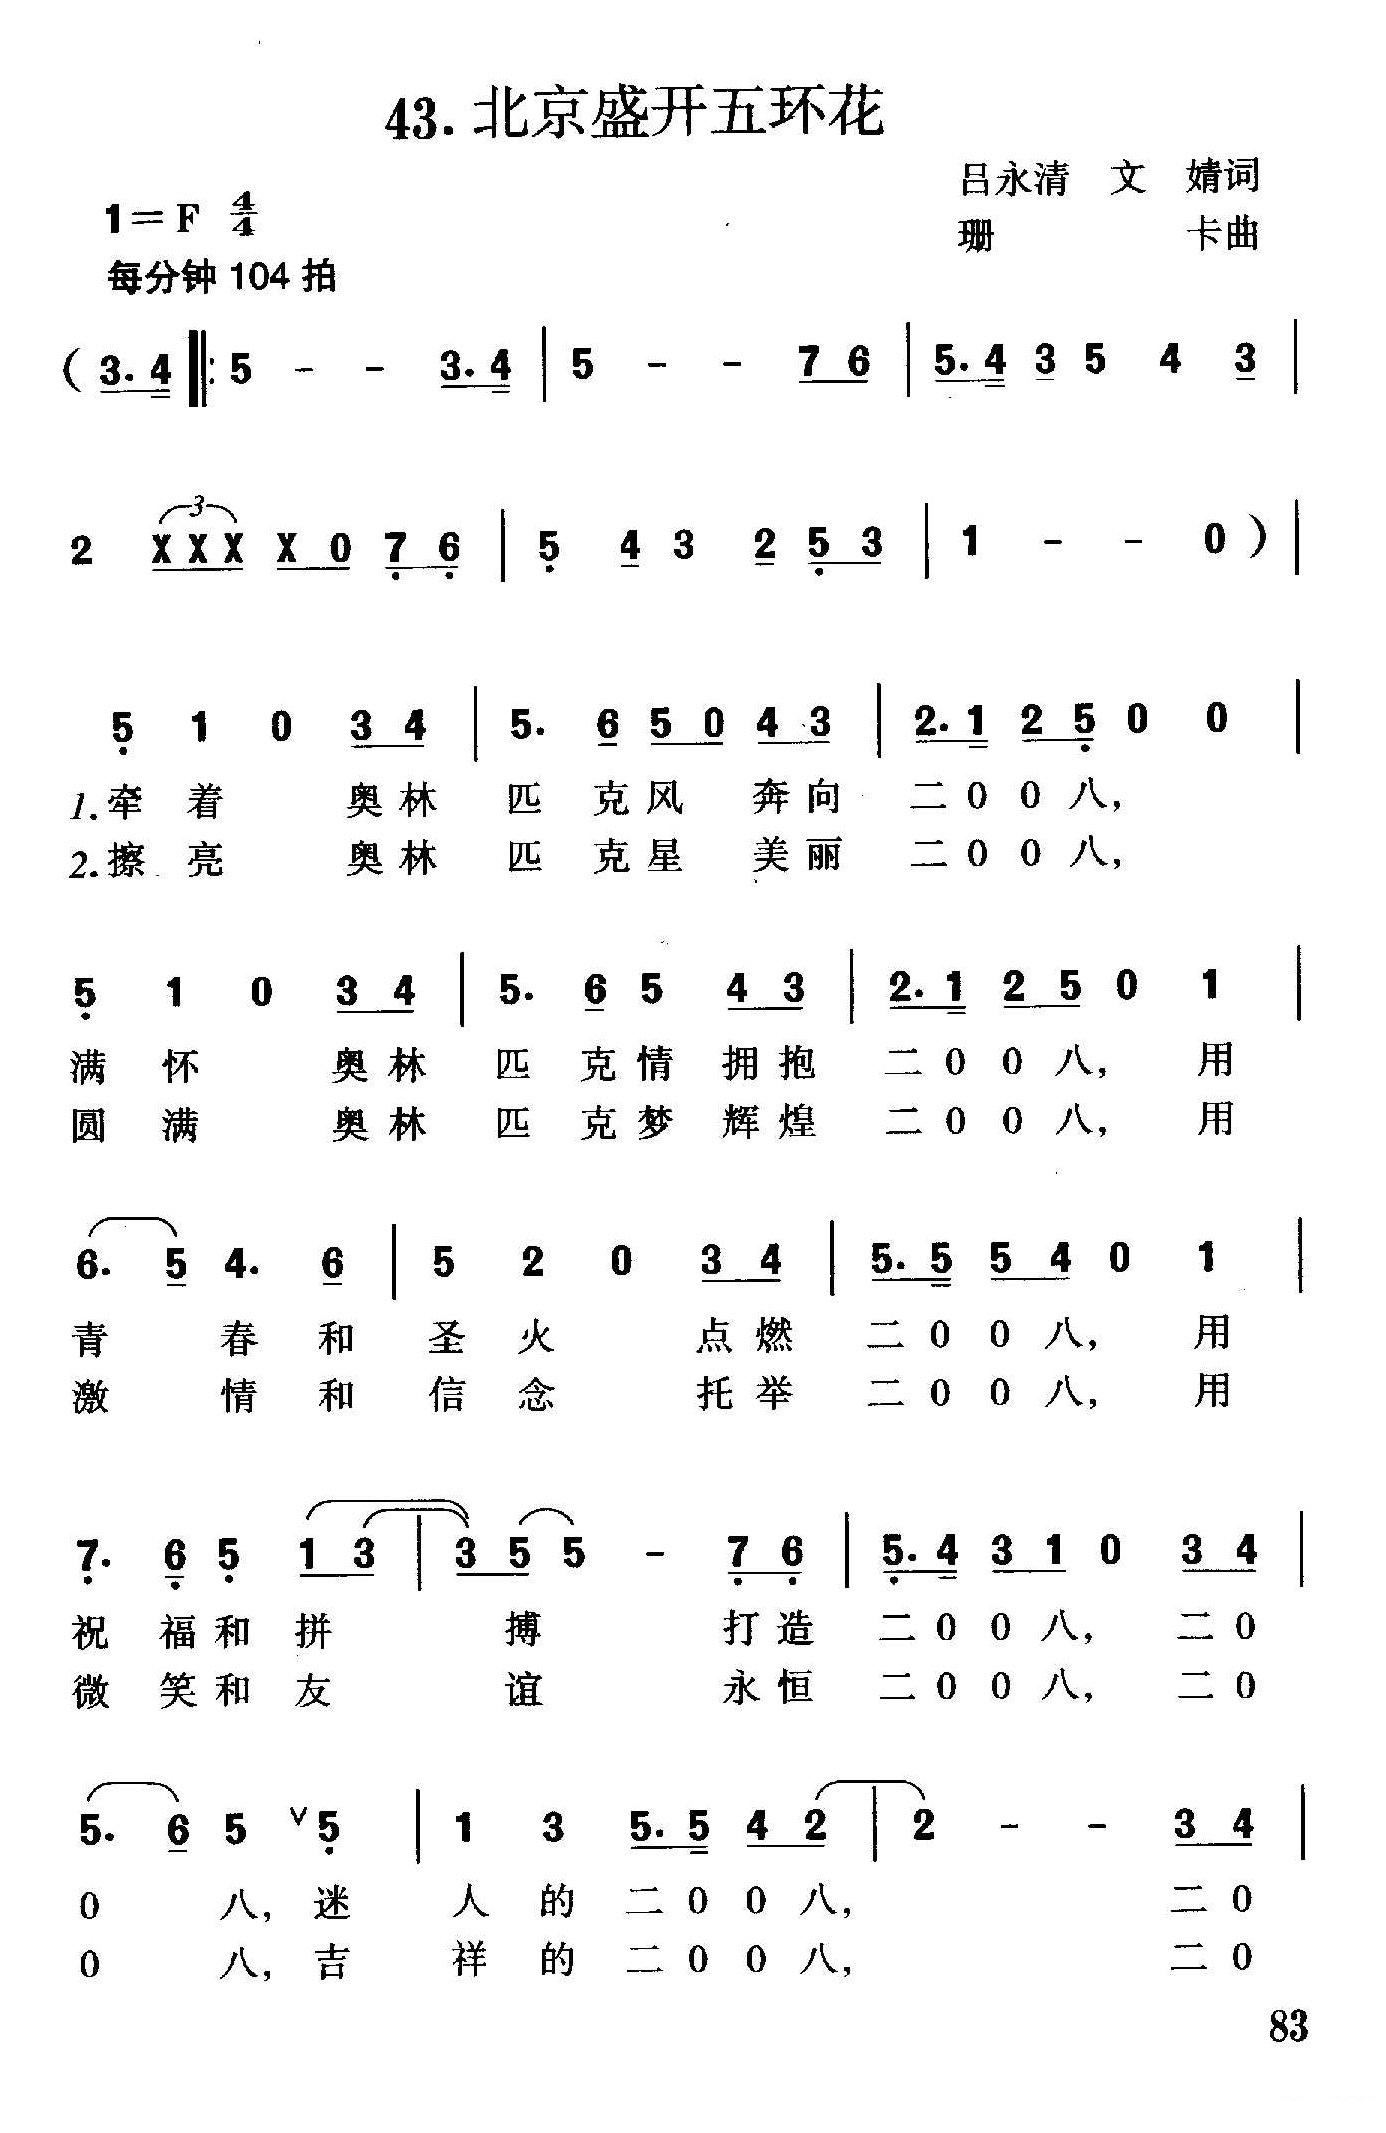 43. 北京盛开五环花
吕永清 文 婧词
1=F 4/4
珊 卡曲
每分钟 104 拍
( 3. 4 ‖: 5 - - 3. 4 | 5 - - 7 6 | 5. 4 3 5 4 3 |
3
2 X X X X 0 7 6 | 5 4 3 2 5 3 | 1 - - 0 ) |
5 1 0 3 4 | 5. 6 5 0 4 3 | 2. 1 2 5 0 0 |
1. 牵 着 奥 林 匹 克 风 奔 向 二 0 0 八,
2. 擦 亮 奥 林 匹 克 星 美 丽 二 0 0 八,
5 1 0 3 4 | 5. 6 5 4 3 | 2. 1 2 5 0 1 |
满 怀 奥 林 匹 克 情 拥 抱 二 0 0 八, 用
圆 满 奥 林 匹 克 梦 辉 煌 二 0 0 八, 用
6. 5 4. 6 | 5 2 0 3 4 | 5. 5 5 4 0 1 |
青 春 和 圣 火 点 燃 二 0 0 八, 用
激 情 和 信 念 托 举 二 0 0 八, 用
7. 6 5 1 3 | 3 5 5 - 7 6 | 5. 4 3 1 0 3 4 |
祝 福 和 拼 搏 打 造 二 0 0 八, 二 0
微 笑 和 友 谊 永 恒 二 0 0 八, 二 0
5. 6 5 ∨ 5 | 1 3 5. 5 4 2 | 2 - - 3 4 |
0 八, 迷 人 的 二 0 0 八, 二 0
0 八, 吉 祥 的 二 0 0 八, 二 0
83